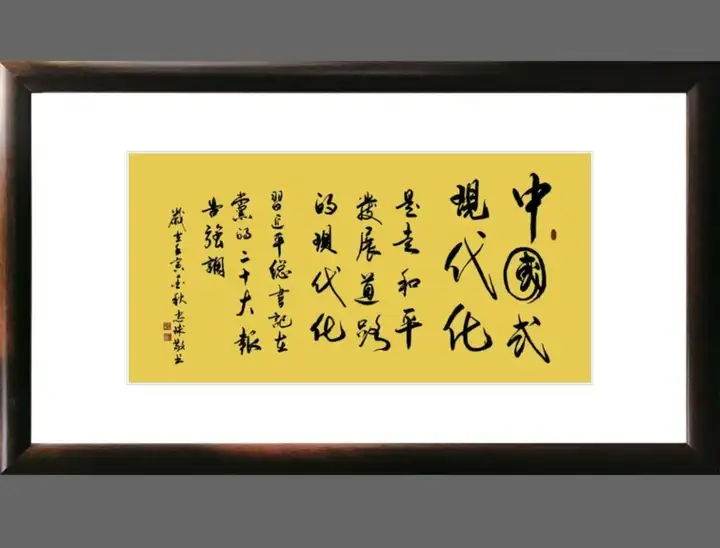 中國式
現代化
是走和平
發展道路
的現代化
習近平總書記在
黨的二十大報
告強調
歲在壬寅金秋志球敬书